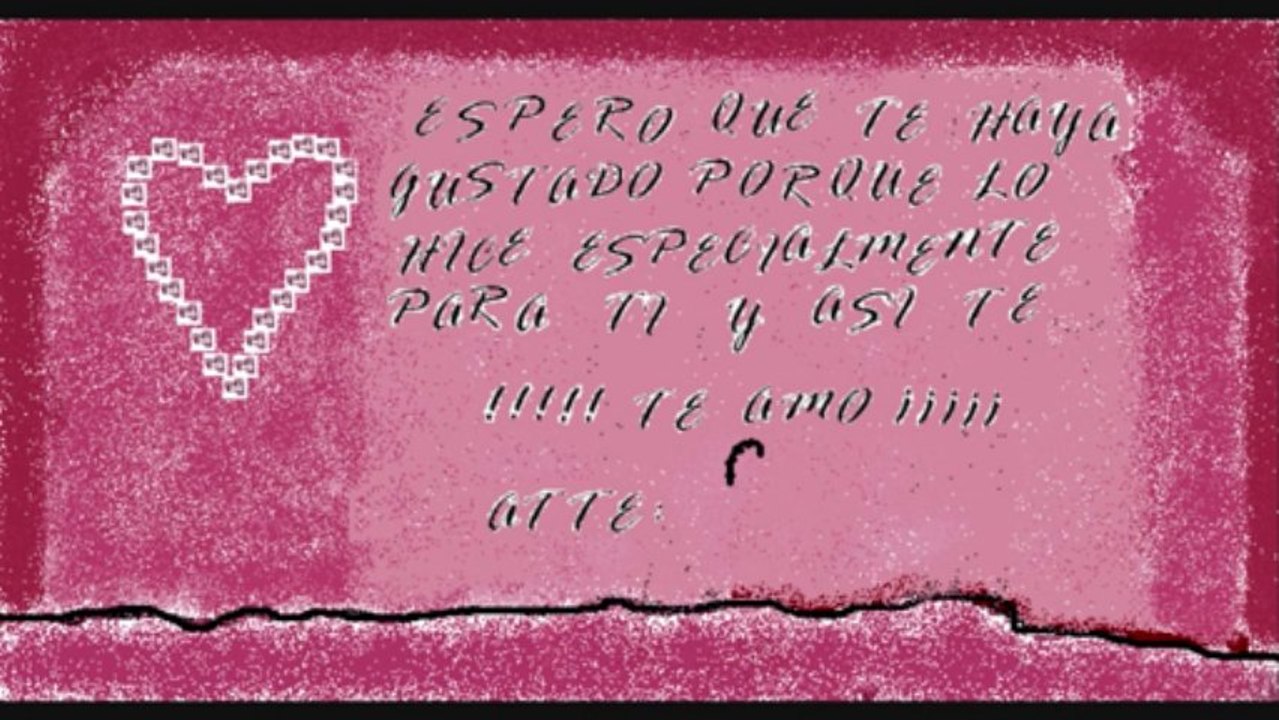 ESPERO QUE TE HAYA
GUSTADO PORQUE LO
HICE ESPECIALMENTE
PARA TI Y ASI TE
!!!!! TE AMO ¡¡¡¡¡
ATTE: